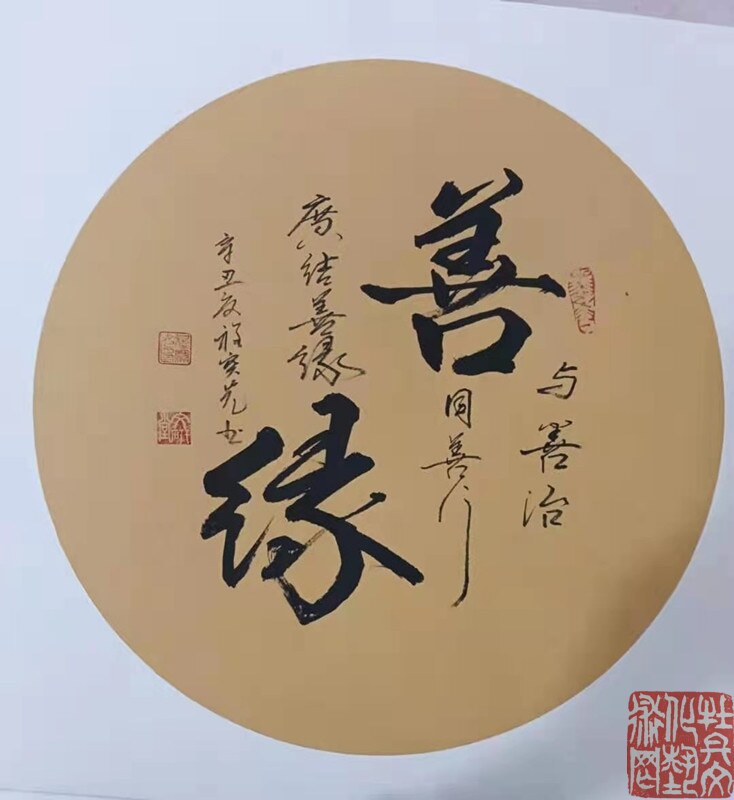 善缘
与善治
同善行
廣结善缘
辛丑夏
书